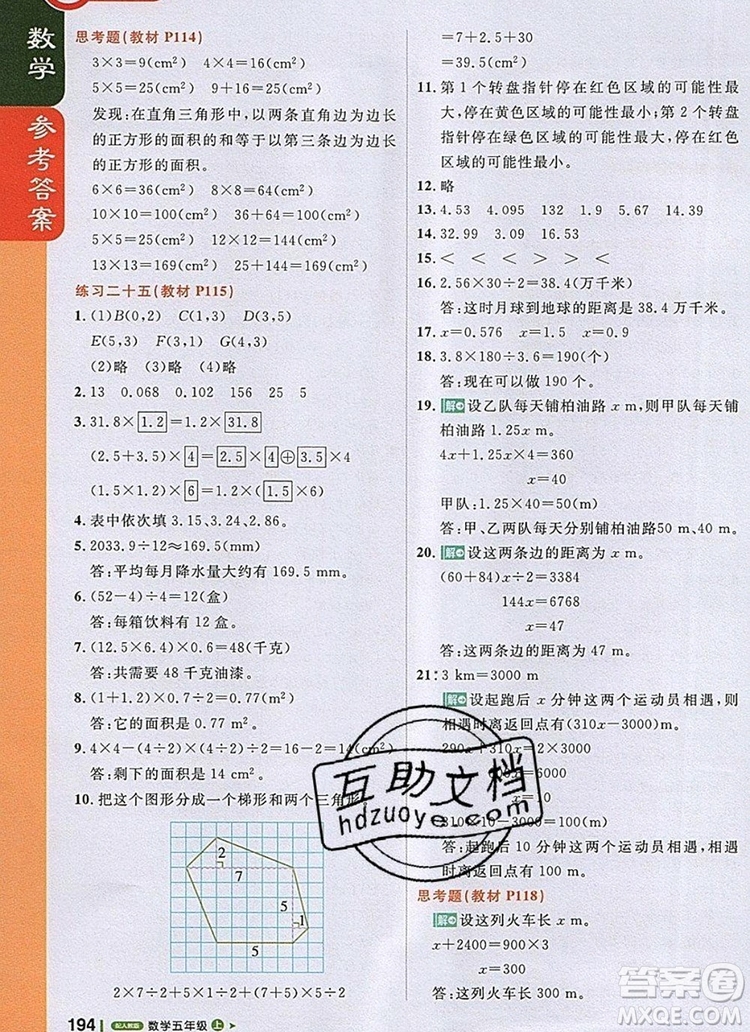 数学
参考答案
思考题(教材 P114)
3×3=9(cm²)　4×4=16(cm²)
5×5=25(cm²)　9+16=25(cm²)
发现:在直角三角形中,以两条直角边为边长
的正方形的面积的和等于以第三条边为边长
的正方形的面积。
6×6=36(cm²)　8×8=64(cm²)
10×10=100(cm²)　36+64=100(cm²)
5×5=25(cm²)　12×12=144(cm²)
13×13=169(cm²)　25+144=169(cm²)
练习二十五(教材 P115)
1. (1)B(0,2)　C(1,5)　D(3,5)
E(5,3)　F(3,1)　G(4,3)
(2)略　(3)略　(4)略
2. 13　0.068　0.102　156　25　5
3. 31.8×1.2=1.2×31.8
(2.5+3.5)×4=2.5×4⊕3.5×4
(1.5×1.2)×6=1.2×(1.5×6)
4. 表中依次填 3.15、24、1.9、2.5。
5. 2033.9÷12≈169.5(mm)
答:平均每月降水量大约有 169.5 mm。
6. (52-4)÷4=12(盒)
答:每箱饮料有 12 盒。
7. (12.5×6.4)×0.6=48(千克)
答:共需要 48 千克油漆。
8. (1+1.2)×0.7÷2=0.77(m²)
答:它的面积是 0.77 m²。
9. 4×4-(4÷2)×(4÷2)÷2=16-2=14(cm²)
答:剩下的面积是 14 cm²。
10. 把这个图形分成一个梯形和两个三角形
2
7
5
1
5
2×7÷2+5×1÷2+(5+7)×5÷2
194 配人教版 数学五年级 上
=7+2.5+30
=39.5(cm²)
11. 第 1 个转盘指针停在红色区域的可能性最
大,停在黄色区域的可能性最小;第 2 个转盘
指针停在绿色区域的可能性最大,停在红色
区域的可能性最小。
12. 略
13. 4.53　4.095　132　1.9　5.67　14.39
14. 32.99　3.09　16.53
15. <　<　<　<
16. 2.56×30÷2=38.4(万千米)
答:这时月球到地球的距离是 38.4 万千米。
17. x=0.576　x=4　x=1.5
18. 3.8×180÷3.6=190(个)
答:现在可以做 190 个。
19. 解 设乙队每天铺柏油路 x m,则甲队每天铺
柏油路 1.25x m。
4x+1.25x×4=360
x=40
甲队:1.25x=1.25×40=50
答:甲、乙两队每天分别铺柏油路50 m、40 m。
20. 解 设这两条边的距离为 x m。
(60+84)x÷2=3384
144x=6768
x=47
答:这两条边的距离为 47 m。
21. 3 km=3000 m
解 设起跑后 x 分钟这两个运动员相遇,则
相遇时离返回点有(310x-3000)m。
290x+310x=3000×2
310×10-3000=100(m)
答:起跑后 10 分钟这两个运动员相遇,相遇
思考题(教材 P118)
解 设这列火车长 x m。
x+2400=900×3
x=300
答:这列火车长 300 m。
互助文档
hdzuoye.com
答案圈
MXQE.COM